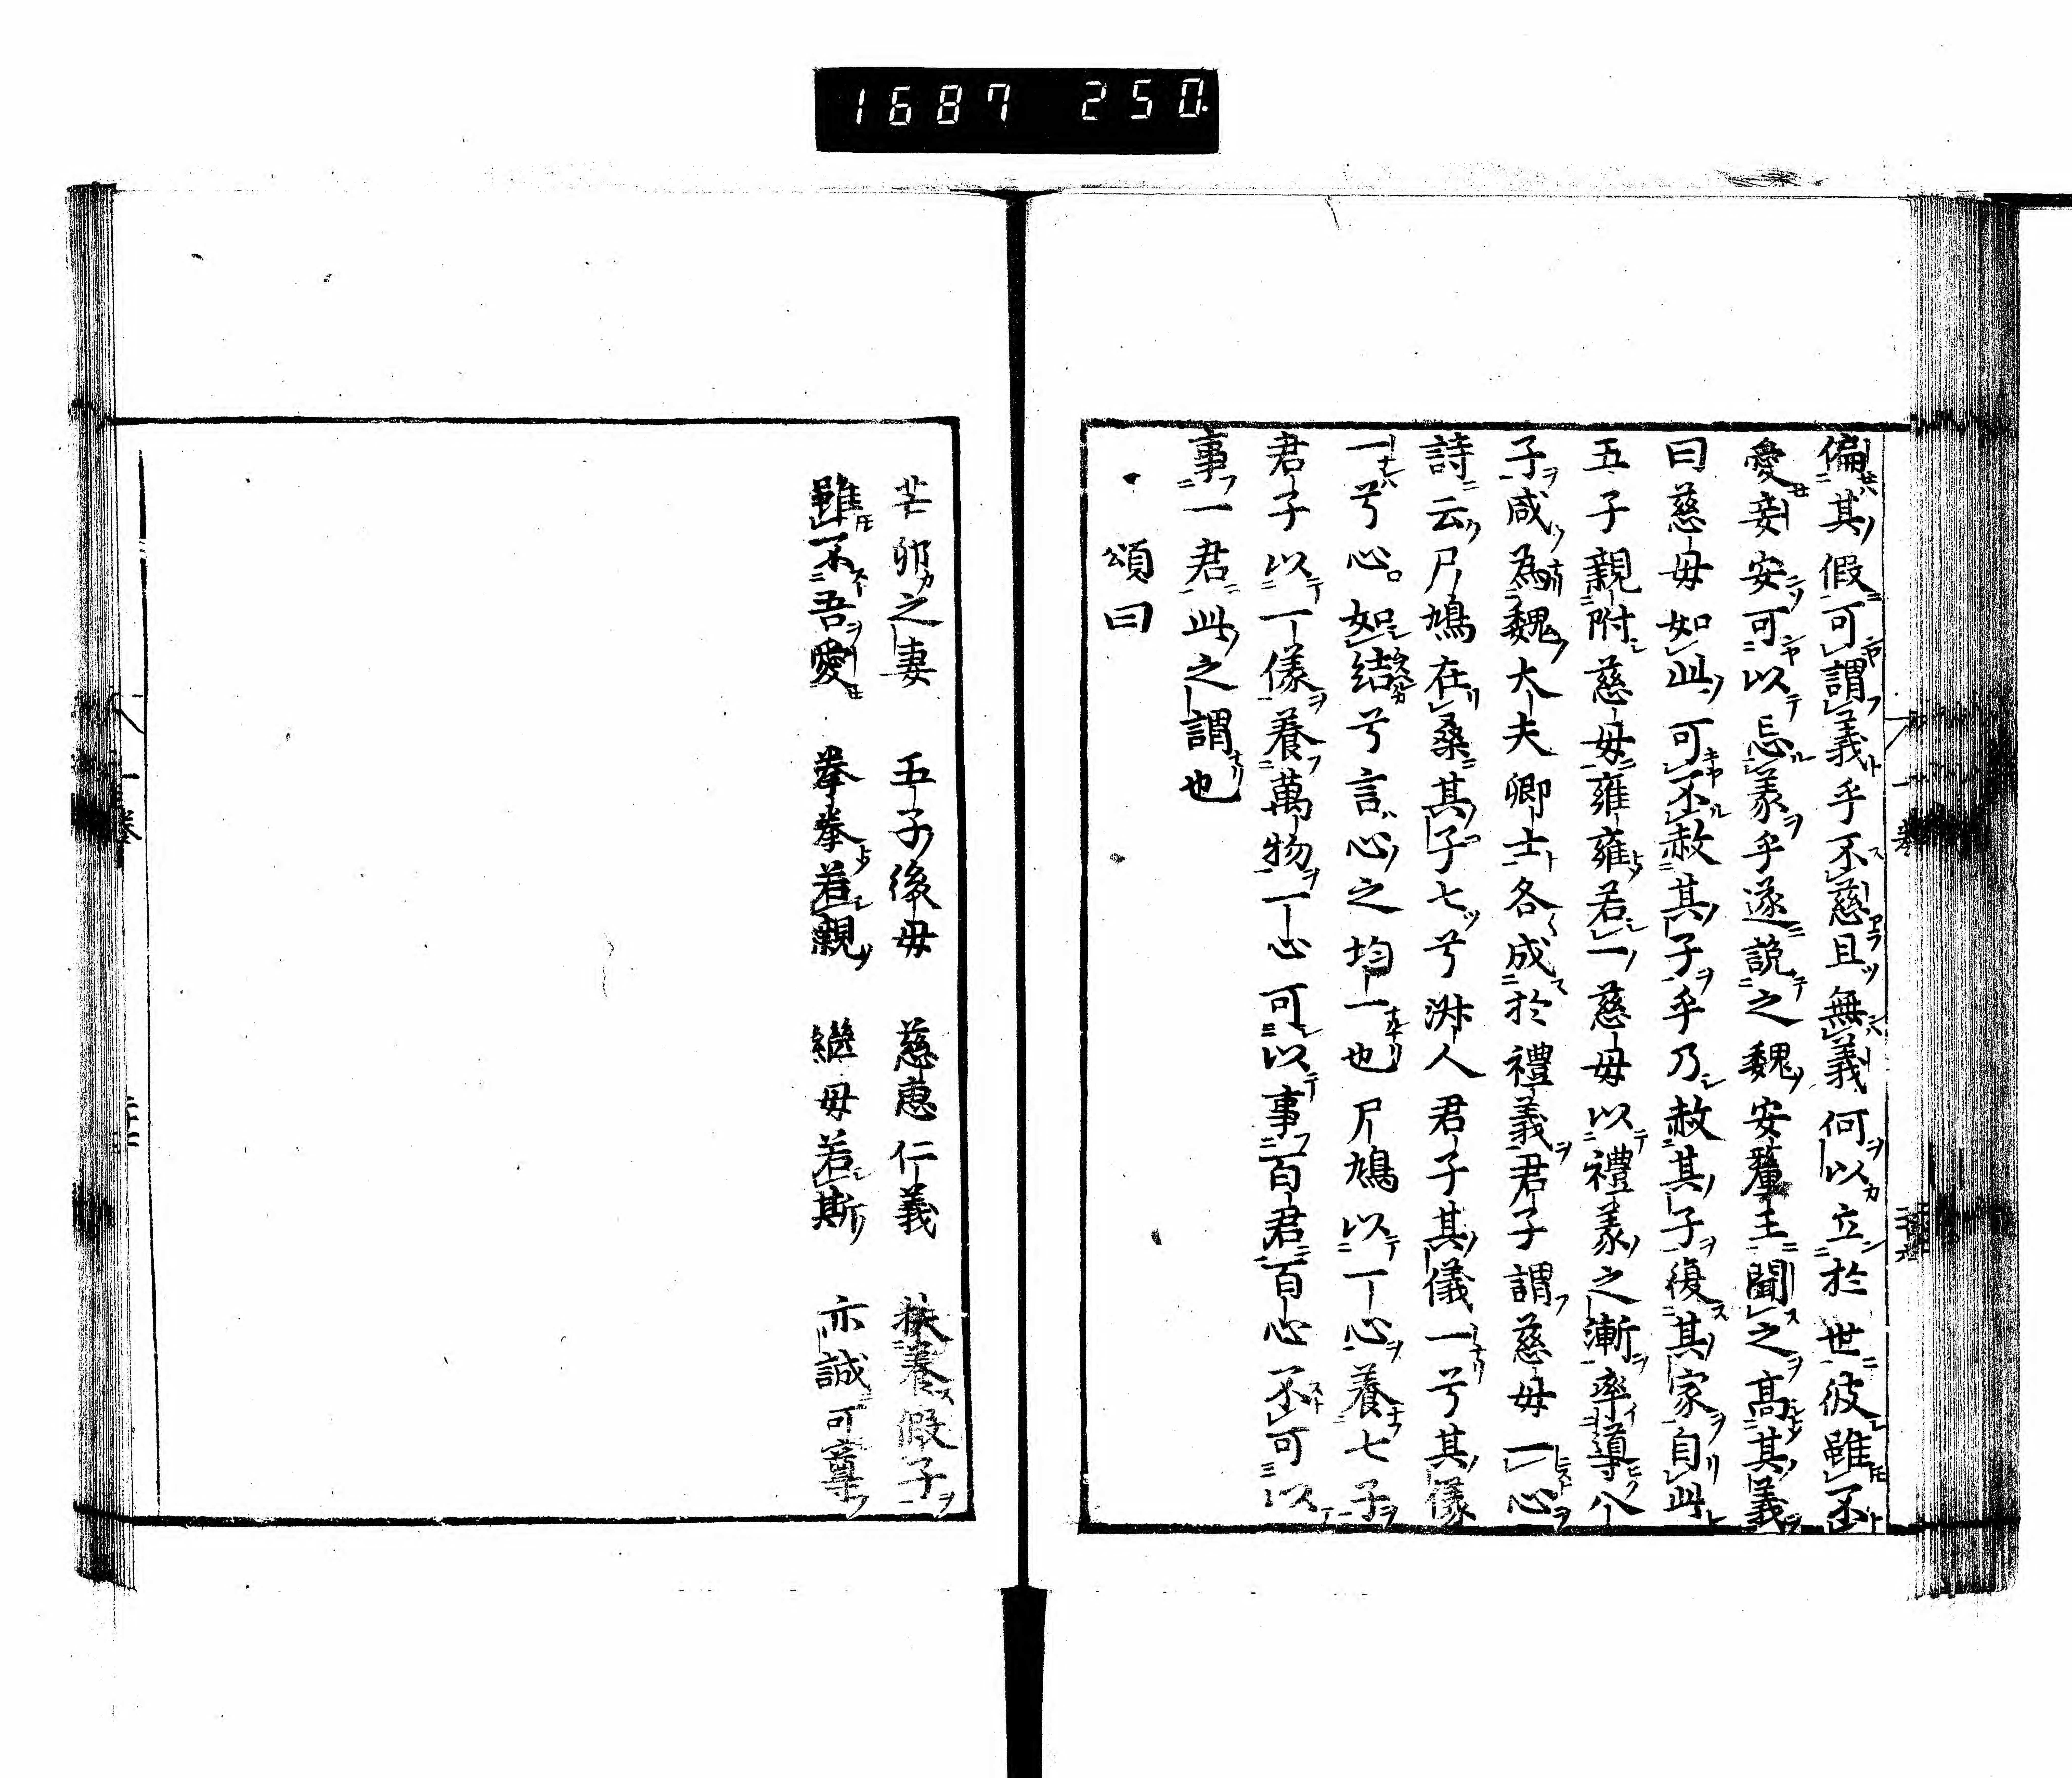 1687 250.
偏其假可謂義乎不慈且無義何以立於世彼雖不
愛妾安可以忘義乎遂訴之魏安釐王聞之高其義
曰慈母如此可不赦其子乎乃赦其子復其家自此
五子親附慈母雍雍若一慈母以禮義之漸率導八
子咸為魏大夫卿士各成於禮義君子謂慈母一心
詩云尸鳩在桑其子七兮淑人君子其儀一兮其儀
一兮心如結兮言心之均一也尸鳩以一心養七子
君子以一儀養萬物一心可以事百君百心不可以
事一君此之謂也
頌曰
芒卯之妻 五子後母 慈惠仁義 扶養假子
雖不吾愛 拳拳若親 繼母若斯 亦誠可尊